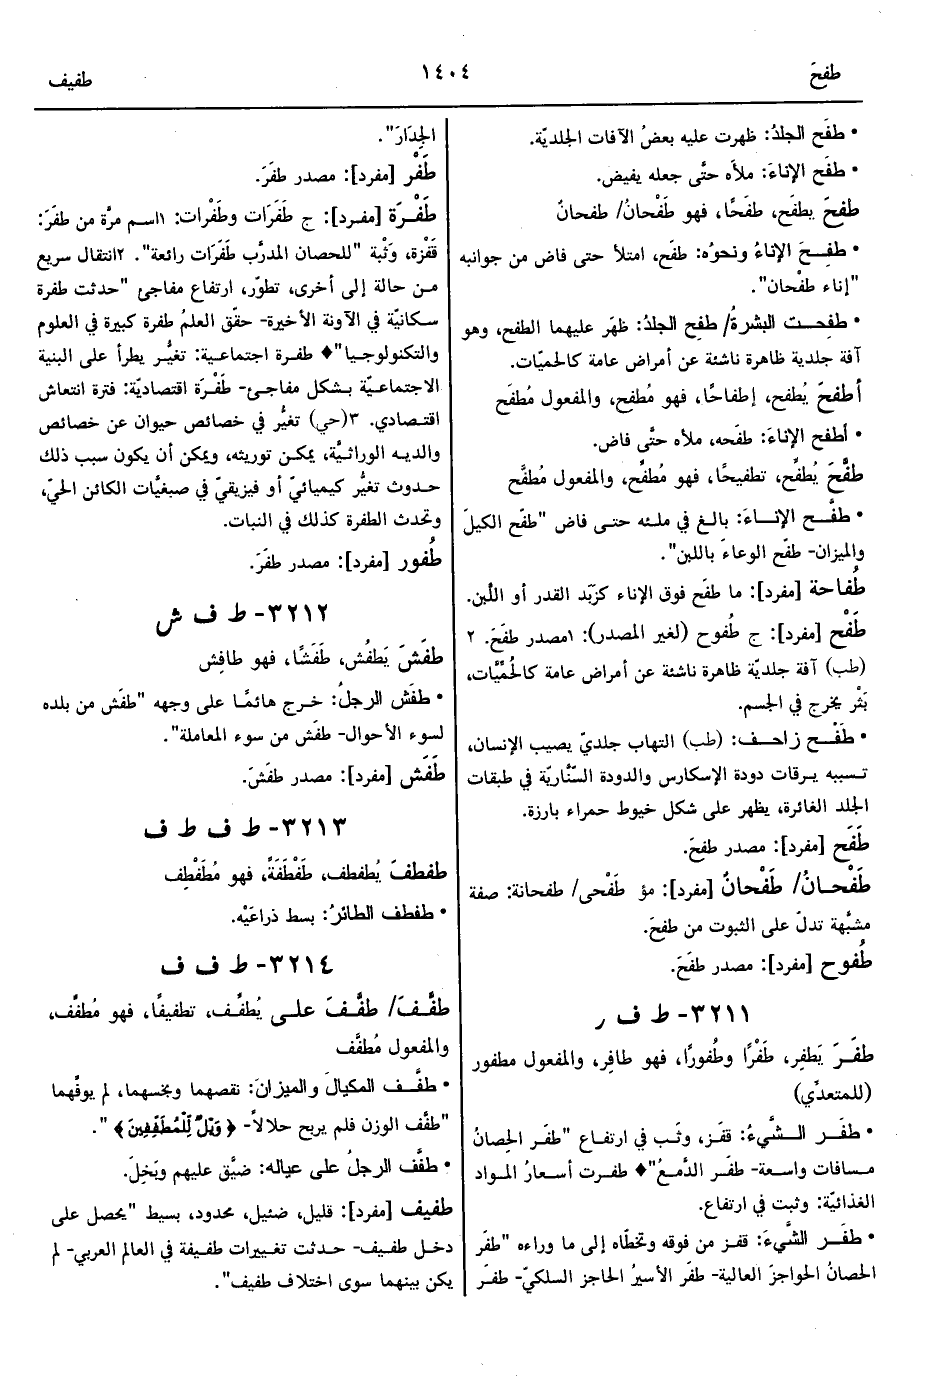 طفحَ
١٤٠٤
طفيف
• طفَح الجلدُ: ظهرت عليه بعضُ الآفات الجلديّة.
• طفَح الإناءَ: ملأه حتَّى جعله يفيض.
طفِحَ يطفَح، طفَحًا، فهو طَفْحانُ/ طفحانٌ
• طفِـحَ الإناءُ ونحوُه: طفَح، امتلأ حتى فاض من جوانبه
"إناء طفْحان".
• طفِحـت البشرةُ/ طفِح الجلدُ: ظهَر عليهما الطفح، وهو
آفة جلدية ظاهرة ناشئة عن أمراض عامة كالحميّات.
أطفحَ يُطفح، إطفاحًا، فهو مُطفِح، والمفعول مُطفَح
• أطفح الإناءَ: طفَحه، ملأه حتَّى فاض.
طفَّحَ يُطفِّح، تطفيحًا، فهو مُطفِّح، والمفعول مُطفَّح
• طفَّـح الإنـاءَ: بالـغ في ملئه حتـى فاض "طفّح الكيلَ
والميزان- طفّح الوعاءَ باللبن".
طُفاحة [مفرد]: ما طفَح فوق الإناء كزَبَد القدر أو اللَّبن.
طَفْح [مفرد]: ج طُفوح (لغير المصدر): ١مصدر طفَحَ. ٢
(طب) آفة جلديّة ظاهرة ناشئة عن أمراض عامة كالحُمَّيَّات،
بَثْر يخرج في الجسم.
• طَفْـح زاحـف: (طب) التهاب جلديّ يصيب الإنسان،
تسببه يرقات دودة الإسكارس والدودة السّنّاريّة في طبقات
الجلد الغائرة، يظهر على شكل خيوط حمراء بارزة.
طَفَح [مفرد]: مصدر طفِحَ.
طَفْحـانُ/ طَفْحانٌ [مفرد]: مؤ طَفْحى/ طفحانة: صفة
مشبَّهة تدلّ على الثبوت من طفِحَ.
طُفوح [مفرد]: مصدر طفَحَ.
٣٢١١- ط ف ر
طفَـرَ يَطفِر، طَفْرًا وطُفورًا، فهو طافِر، والمفعول مطفور
(للمتعدِّي)
• طفَـر الـشَّيءُ: قفز، وثَب في ارتفاع "طفَر الحِصانُ
مسافات واسعة- طفَر الدَّمعُ"♦ طفـرت أسعارُ المـواد
الغذائيّة: وثبت في ارتفاع.
• طفَـر الشَّيءَ: قفـز من فوقه وتخطّاه إلى ما وراءه "طفَر
الحصانُ الحواجزَ العالية- طفَر الأسيرُ الحاجز السلكيّ- طفـَر
الجِدَارَ".
طَفْر [مفرد]: مصدر طفَرَ.
طَفْـرَة [مفرد]: ج طَفَرَات وطَفْرات: ١اسم مرَّة من طفَرَ:
قَفْزة، وَثْبة "للحصان المدرَّب طَفَرَات رائعة". ٢انتقال سريع
مـن حالة إلى أخرى، تطوّر، ارتفاع مفاجئ "حدثت طفرة
سكانيّة في الآونة الأخيرة- حقّق العلمُ طفرة كبيرة في العلوم
والتكنولوجيـا"♦ طفـرة اجتماعـية: تغيُّـر يطرأ على البنية
الاجتماعيّة بـشكل مفاجئ- طَفْـرَة اقتصاديّة: فترة انتعاش
اقتـصادي. ٣(حي) تغيُّر في خصائص حيوان عن خصائص
والديه الوراثيَّة، يمكـن توريثه، ويمكن أن يكون سبب ذلك
حـدوث تغيُّر كيميائيّ أو فيزيقيّ في صبغيَّات الكائن الحيّ،
وتحدث الطفرة كذلك في النبات.
طُفور [مفرد]: مصدر طفَرَ.
٣٢١٢- ط ف ش
طفَشَ يَطفُش، طَفَشًا، فهو طافِش
• طفَش الرجلُ: خـرج هائمًـا على وجهه "طفَش من بلده
لسوء الأحوال- طفَش من سوء المعاملة".
طَفَش [مفرد]: مصدر طفَشَ.
٣٢١٣- ط ف ط ف
طفطفَ يُطفطف، طَفْطَفَةً، فهو مُطَفْطِف
• طفطف الطائرُ: بسط ذراعَيْه.
٣٢١٤- ط ف ف
طفَّـفَ/ طفَّـفَ علـى يُطفِّـف، تطفيفًا، فهو مُطفِّف،
والمفعول مُطفَّف
• طفَّـف المكيالَ والميزانَ: نقصهما وبخسهما، لم يوفِّهما
"طفَّف الوزن فلم يربح حلالاً- ﴿ وَيْلٌ لِّلْمُطَفِّفِينَ ﴾ ".
• طفَّف الرجلُ على عياله: ضيَّق عليهم وبَخِلَ.
طفيف [مفرد]: قليل، ضئيل، محدود، بسيط "يحصل على
دخل طفيـف- حدثت تغييرات طفيفة في العالم العربي- لم
يكن بينهما سوى اختلاف طفيف".